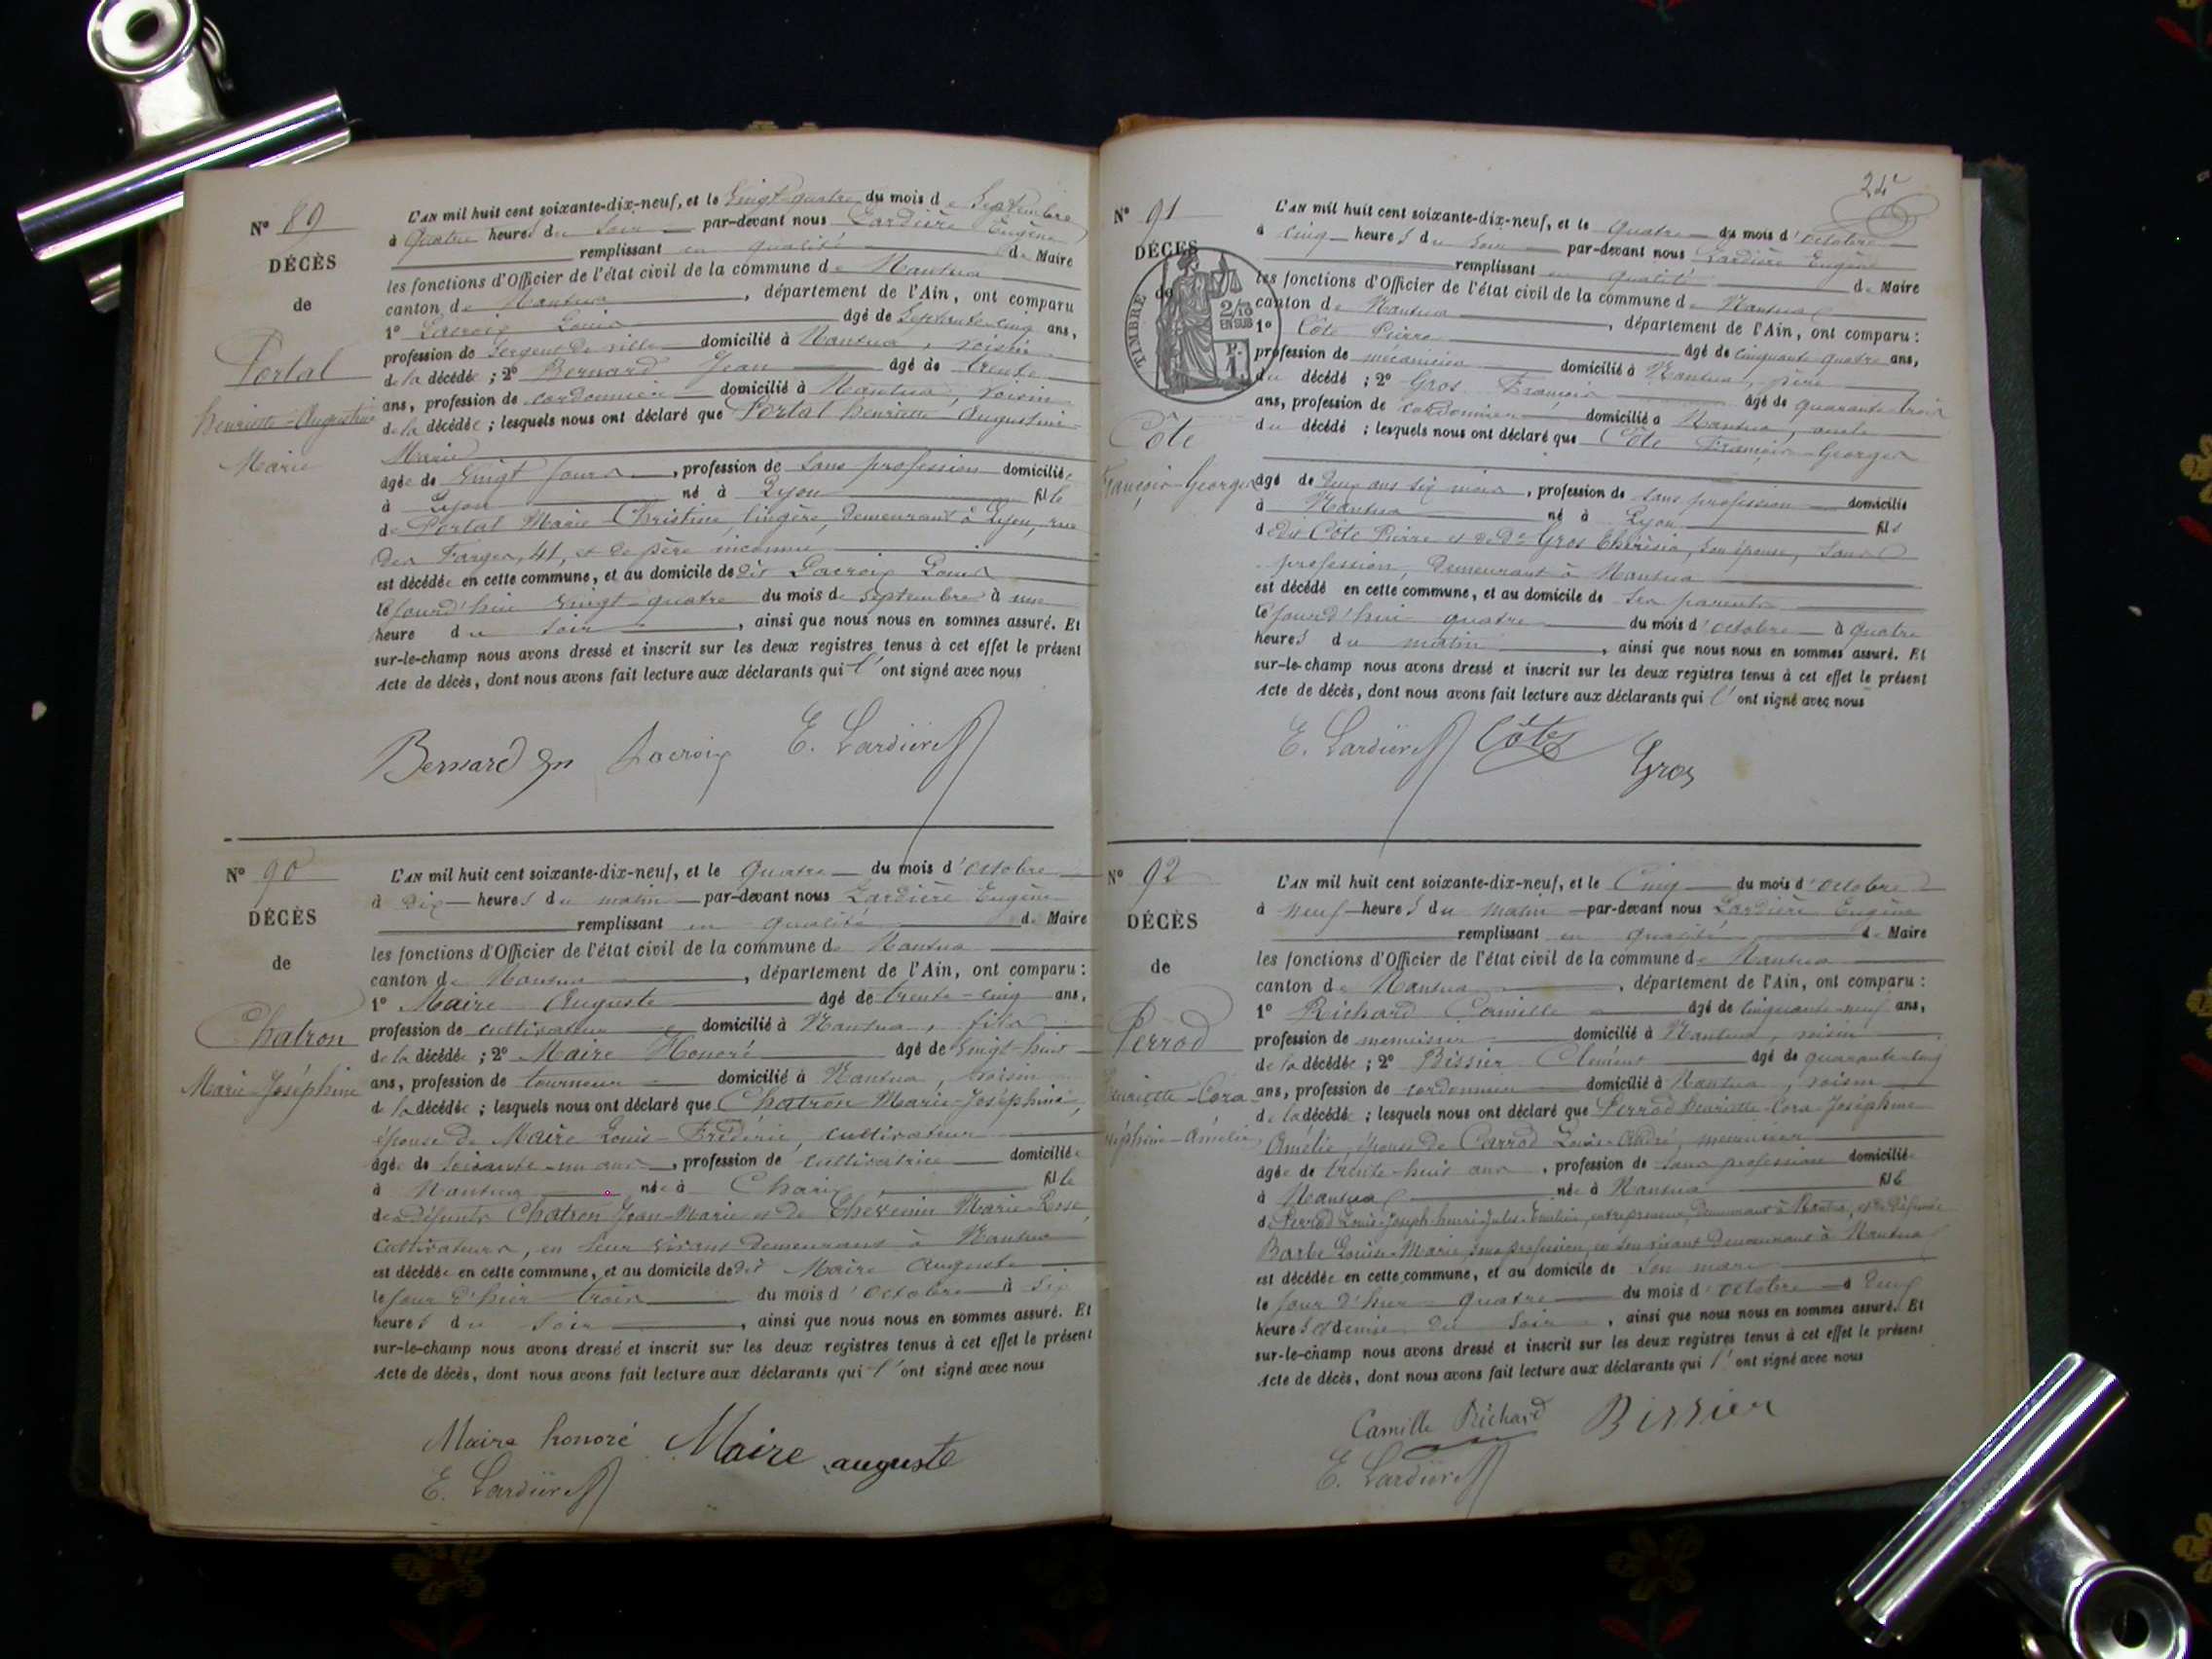 N° 89
DÉCÈS
de
Portal
henriette-Augustine
Marie
L'AN mil huit cent soixante-dix-neuf, et le Vingt quatre du mois de Septembre
à Quatre heures du Soir par-devant nous Lardière Eugène
remplissant en qualité de Maire
les fonctions d'Officier de l'état civil de la commune de Nantua
canton de Nantua, département de l'Ain, ont comparu
1° Lacroix Louis âgé de Septante-cinq ans,
profession de Sergent de ville domicilié à Nantua, voisin
de la décédée ; 2° Bernard Jean âgé de trente
ans, profession de cordonnier domicilié à Nantua, voisin
de la décédée ; lesquels nous ont déclaré que Portal henriette Augustine
Marie
âgée de Vingt jours, profession de Sans profession domiciliée
à Lyon né à Lyon fille
de Portal Marie Christine, lingère, demeurant à Lyon, rue
des Farges, 41, et de père inconnu
est décédée en cette commune, et au domicile de dit Lacroix Louis
le jourd'hui vingt-quatre du mois de Septembre à une
heure du soir, ainsi que nous nous en sommes assuré. Et
sur-le-champ nous avons dressé et inscrit sur les deux registres tenus à cet effet le présent
Acte de décès, dont nous avons fait lecture aux déclarants qui l'ont signé avec nous
Bernard Lacroix E. Lardière
N° 90
DÉCÈS
de
Chatron
Marie-Joséphine
L'AN mil huit cent soixante-dix-neuf, et le Quatre du mois d'octobre
à Dix heures du matin par-devant nous Lardière Eugène
remplissant en qualité de Maire
les fonctions d'Officier de l'état civil de la commune de Nantua
canton de Nantua, département de l'Ain, ont comparu :
1° Maire Auguste âgé de trente-cinq ans,
profession de cultivateur domicilié à Nantua, fils
de la décédée ; 2° Maire Honoré âgé de Vingt-huit
ans, profession de tourneur domicilié à Nantua, voisin
de la décédée ; lesquels nous ont déclaré que Chatron Marie-Joséphine,
épouse de Maire Louis-Frédéric, cultivateur
âgée de soixante-un ans, profession de cultivatrice domiciliée
à Nantua née à Charix fille
des défunts Chatron Jean-Marie et de Thévenin Marie-Rose
cultivateurs, en leur vivant demeurant à Nantua
est décédée en cette commune, et au domicile de dit Maire Auguste
le jour d'hier trois du mois d'Octobre à Six
heures du Soir, ainsi que nous nous en sommes assuré. Et
sur-le-champ nous avons dressé et inscrit sur les deux registres tenus à cet effet le présent
Acte de décès, dont nous avons fait lecture aux déclarants qui l'ont signé avec nous
Maire honoré Maire auguste
E. Lardière
24
N° 91
DÉCÈS
de
TIMBRE
2/10
EN SUS
Côte
François-Georges
L'AN mil huit cent soixante-dix-neuf, et le Quatre du mois d'Octobre
à cinq heures du Soir par-devant nous Lardière Eugène
remplissant en qualité de Maire
les fonctions d'Officier de l'état civil de la commune de Nantua
canton de Nantua, département de l'Ain, ont comparu :
1° Côte Pierre âgé de cinquante quatre ans,
profession de mécanicien domicilié à Nantua, père
du décédé ; 2° Gros François âgé de quarante-trois
ans, profession de cordonnier domicilié à Nantua, oncle
du décédé ; lesquels nous ont déclaré que Côte François-Georges
âgé de Deux ans six mois, profession de sans profession domicilié
à Nantua né à Lyon fils
de dit Côte Pierre et de De Gros Thérésia, son épouse, sans
profession, demeurant à Nantua
est décédé en cette commune, et au domicile de Ses parents
le jourd'hui quatre du mois d'octobre à quatre
heures du matin, ainsi que nous nous en sommes assuré. Et
sur-le-champ nous avons dressé et inscrit sur les deux registres tenus à cet effet le présent
Acte de décès, dont nous avons fait lecture aux déclarants qui l'ont signé avec nous
E. Lardière Côte Gros
N° 92
DÉCÈS
de
Perrod
Henriette-Cora
Joséphine-Amélie
L'AN mil huit cent soixante-dix-neuf, et le Cinq du mois d'Octobre
à neuf heures du matin par-devant nous Lardière Eugène
remplissant en qualité de Maire
les fonctions d'Officier de l'état civil de la commune de Nantua
canton de Nantua, département de l'Ain, ont comparu :
1° Richard Camille âgé de Cinquante-neuf ans,
profession de menuisier domicilié à Nantua, voisin
de la décédée ; 2° Bissier Clément âgé de quarante-cinq
ans, profession de cordonnier domicilié à Nantua, voisin
de la décédée ; lesquels nous ont déclaré que Perrod Henriette-Cora-Joséphine
Amélie, épouse de Carrod Louis-André, menuisier
âgée de trente-huit ans, profession de sans profession domiciliée
à Nantua née à Nantua fille
de Perrod Louis-Joseph-henri-Jules-Emilien, entrepreneur, demeurant à Nantua, et de défunte
Barbe Louise-Marie, sans profession, en son vivant demeurant à Nantua
est décédée en cette commune, et au domicile de Son mari
le jour d'hier quatre du mois d'octobre à Deux
heures et demie du Soir, ainsi que nous nous en sommes assuré. Et
sur-le-champ nous avons dressé et inscrit sur les deux registres tenus à cet effet le présent
Acte de décès, dont nous avons fait lecture aux déclarants qui l'ont signé avec nous
Camille Richard Bissier
E. Lardière